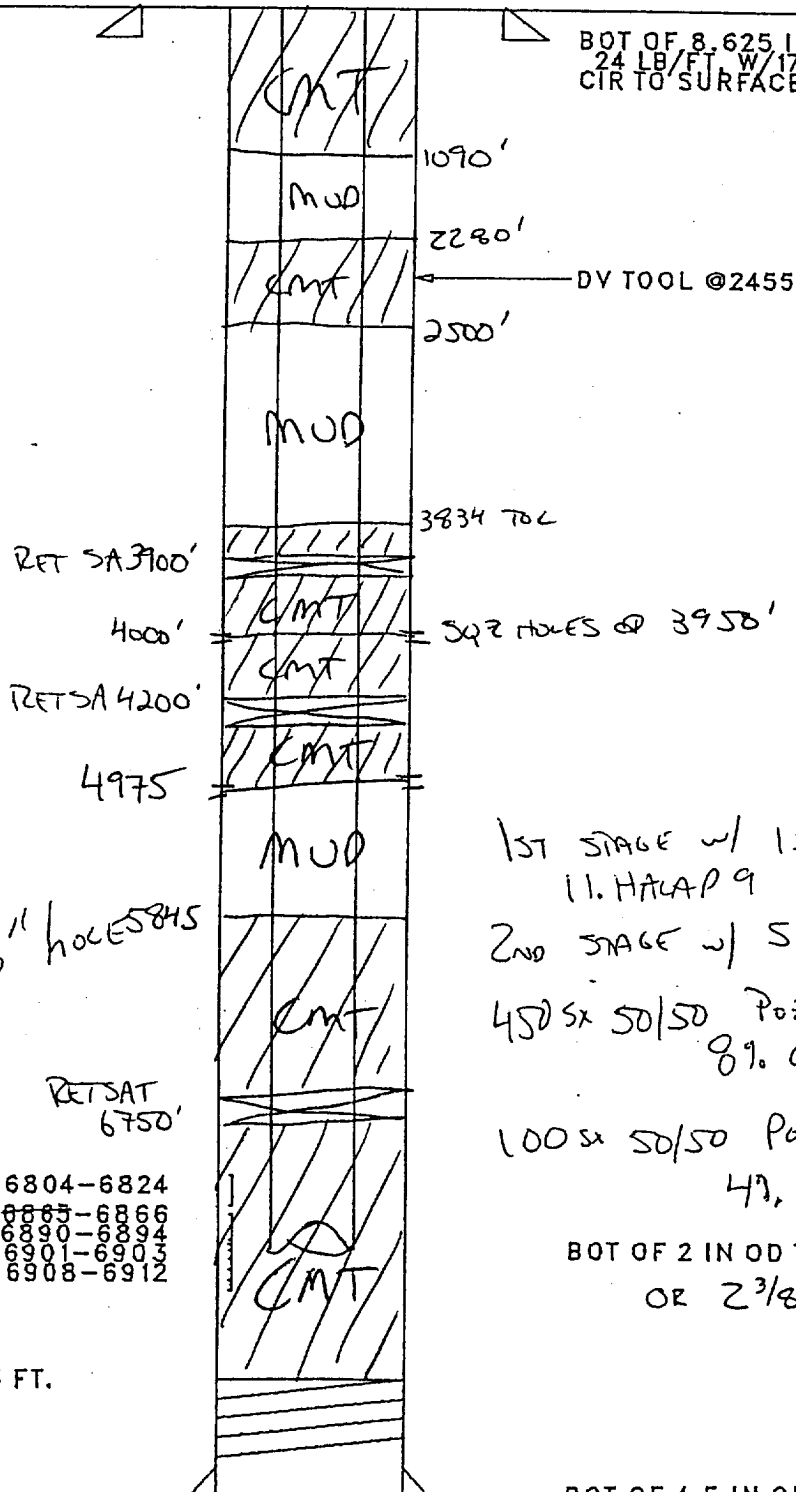 BOT OF 8.625 I
24 LB/FT. W/17
CIR TO SURFACE
CMT
1090'
MUD
2280'
CMT
DV TOOL @2455
2500'
MUD
3834 TOC
RET SA 3900'
CMT
4000'
SQZ HOLES @ 3950'
CMT
RET SA 4200'
CMT
4975
MUD
1ST STAGE w/ 1
11. HALAP 9
" HOLE 5845
2ND STAGE w/ 5
CMT
450 SX 50/50 Poz
8%
RETSAT
6750'
100 SX 50/50 Po
4%
6804-6824
6865-6866
6890-6894
6901-6903
6908-6912
BOT OF 2 IN OD
OR 2 3/8
CMT
FT.
BOT OF 4.5 IN O